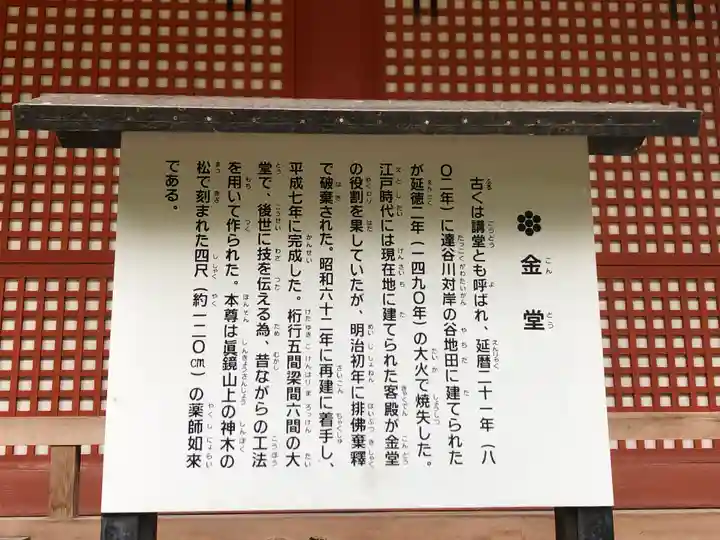 金堂
古くは講堂とも呼ばれ、延暦二十一年（八
〇二年）に達谷川対岸の谷地田に建てられた
が延徳二年（一四九〇年）の大火で焼失した。
江戸時代には現在地に建てられた客殿が金堂
の役割を果していたが、明治初年に排佛棄釋
で破棄された。昭和六十二年に再建に着手し、
平成七年に完成した。桁行五間梁間六間の大
堂で、後世に技を伝える為、昔ながらの工法
を用いて作られた。本尊は眞鏡山上の神木の
松で刻まれた四尺（約一二〇㎝）の薬師如來
である。